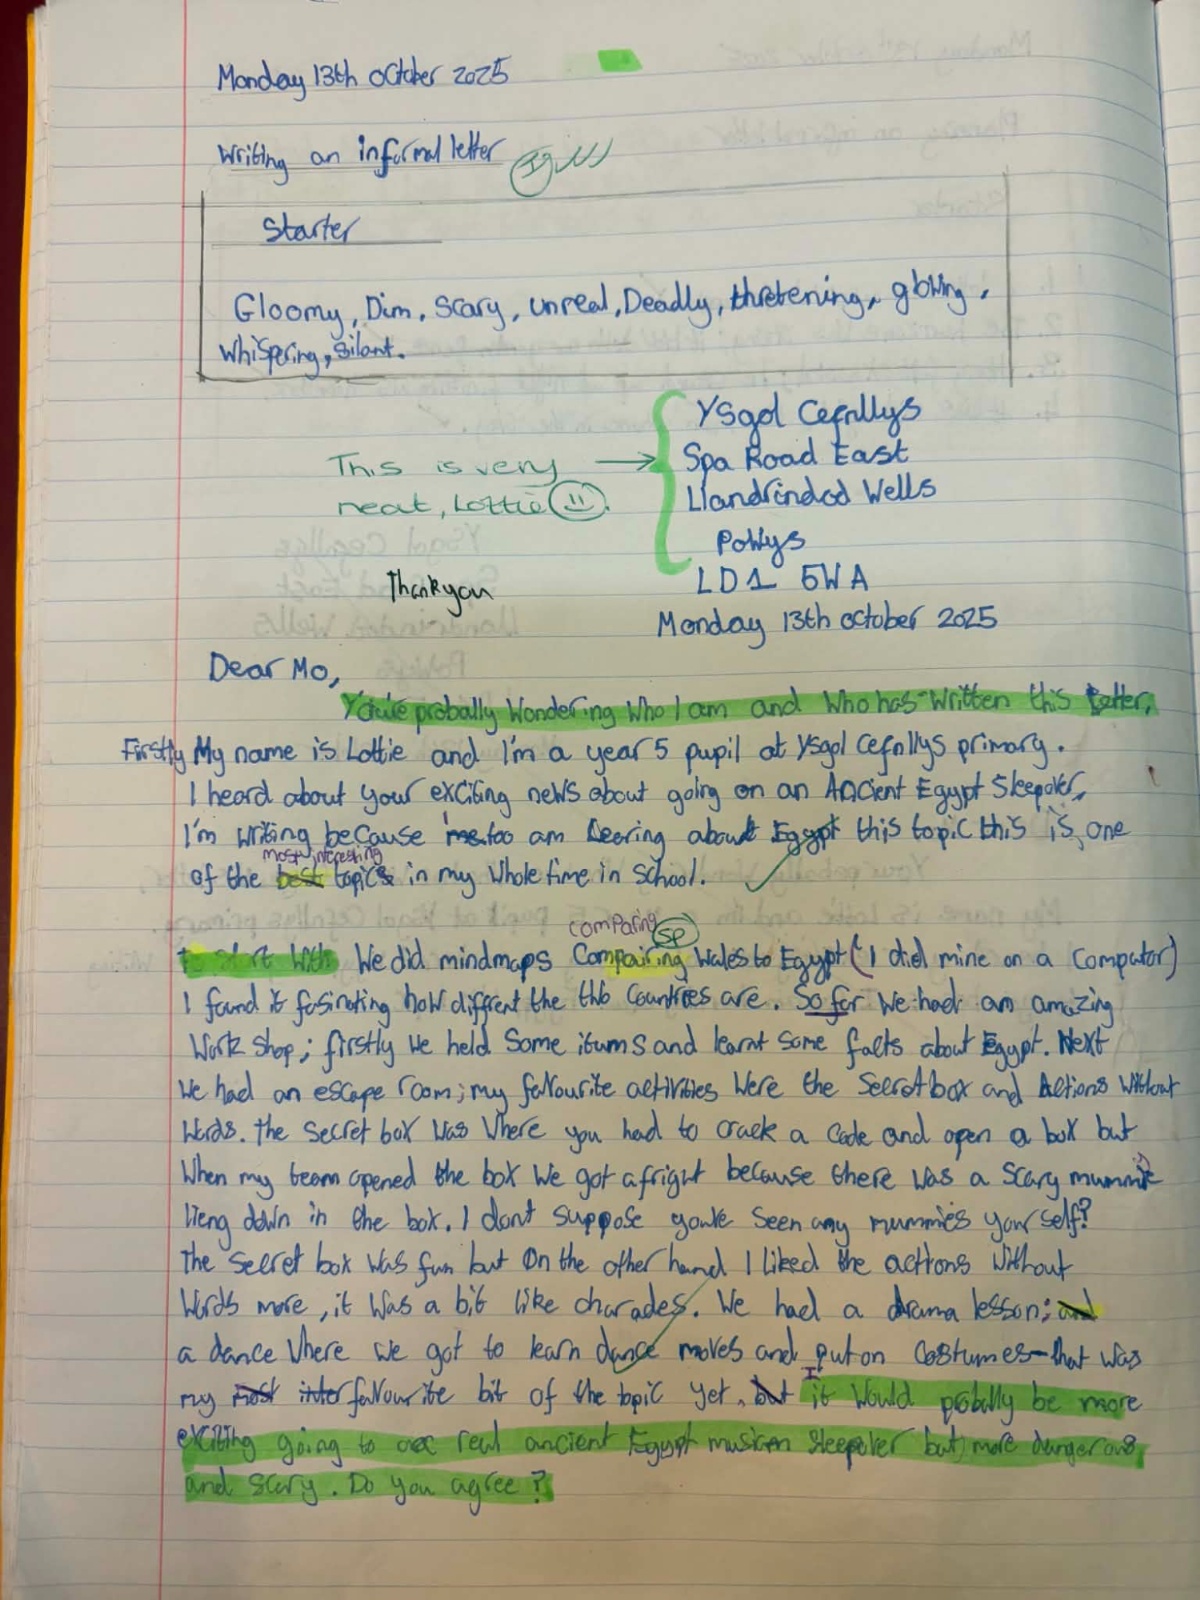 Monday 13th october 2025
Writing an informal letter
Starter
Gloomy, Dim, Scary, unreal, Deadly, thretening, glowing,
whispering, silant.
Ysgol Cefnllys
Spa Road East
Llandrindod Wells
Powys
LD1 5WA
This is very
neat, Lottie
Thankyou
Monday 13th october 2025
Dear Mo,
You're probally Wondering Who I am and Who has Written this Letter,
Firstly My name is Lottie and I'm a year 5 pupil at Ysgol Cefnllys primary.
I heard about your exciting news about going on an Ancient Egypt Sleepover,
I'm Writing because me too am Learing about Egypt this topic this is one
most interesting
of the best topics in my Whole time in School.
comparing sp
to start With We did mindmaps Compairing Wales to Egypt (I did mine on a Computor)
I found it fasinating how diffrent the two Countries are. So far We had an amazing
Work shop; firstly We held Some itums and learnt some facts about Egypt. Next
We had an escape room; my favourite activities Were the Secret box and Actions Without
Words. The Secret box Was Where you had to crack a Code and open a box but
When my team opened the box We got a fright because there Was a Scary mummie
lieng down in the box. I dont Suppose youve Seen any mummies yourself?
The Secret box Was fun but On the other hand I liked the actions Without
Words more, it Was a bit like charades. We had a drama lesson; and
a dance Where We got to learn dance moves and put on Costumes-that Was
my most inter favourite bit of the topic yet, but It Would probally be more
exciting going to real ancient Egypt Sleepover but more dangerous
and Scary. Do you agree?